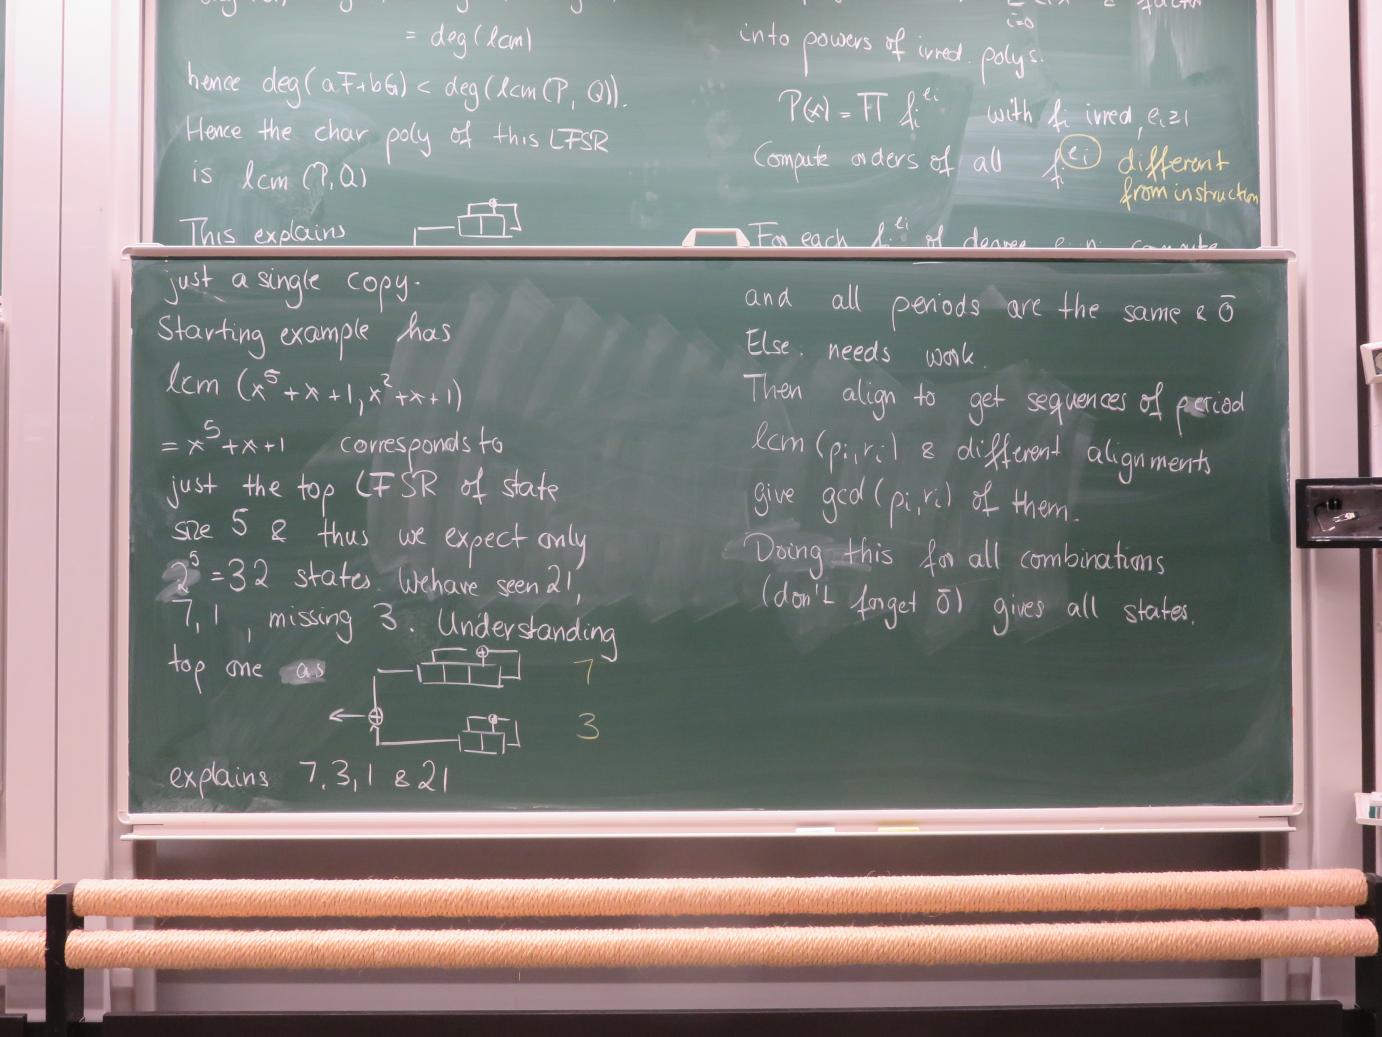 = deg(lcm)
hence deg(aF+bG) < deg(lcm(P, Q)).
Hence the char poly of this LFSR
is lcm (P,Q)
This explains
just a single copy.
Starting example has
lcm (x⁵+x+1, x²+x+1)
= x⁵+x+1 corresponds to
just the top LFSR of state
size 5 & thus we expect only
2⁵ = 32 states. We have seen 21,
7, 1, missing 3. Understanding
top one as
7
3
explains 7, 3, 1 & 21
i=0
into powers of irred. polys.
P(x) = Π fᵢ^eᵢ with fᵢ irred, eᵢ≥1
Compute orders of all fᵢ^eᵢ different
from instruction
For each fᵢ^eᵢ of degree eᵢ·nᵢ compute
and all periods are the same & 0̄
Else. needs work.
Then align to get sequences of period
lcm(pᵢ,rᵢ) & different alignments
give gcd(pᵢ,rᵢ) of them.
Doing this for all combinations
(don't forget 0̄) gives all states.